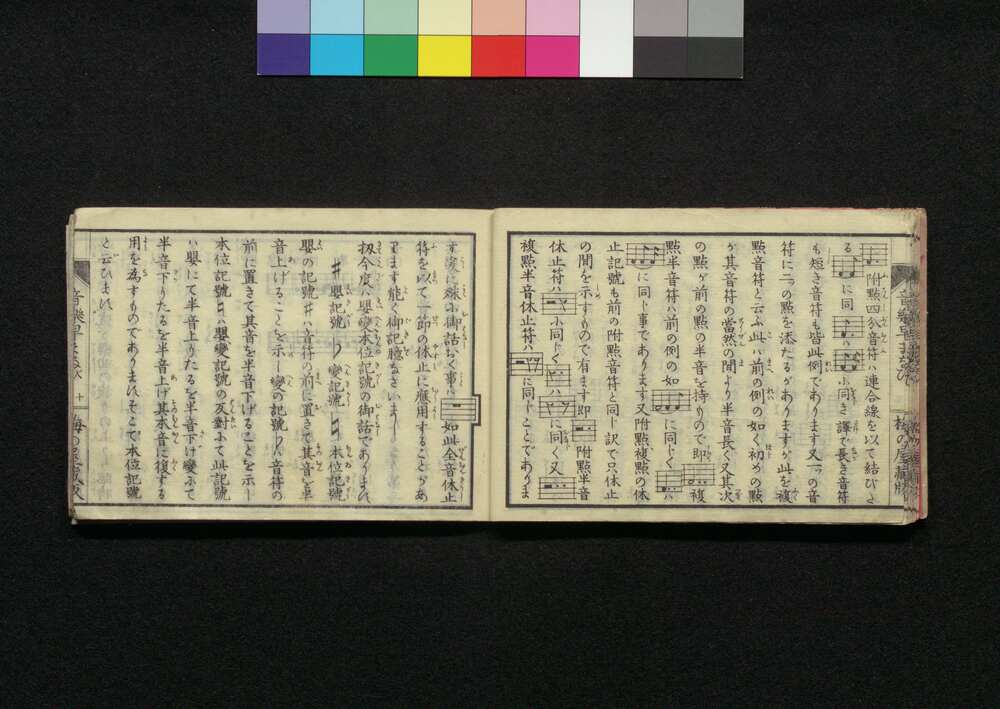 附點四分音符ハ連合線を以て結びた
る に同 ふ同き譯で長き音符
も短き音符も皆此例であります又一つの音
符に二つの點を添たるがありますが此を複
點音符と云ふ此ハ前の例の如く初めの點
ガ其音符の當然の間より半音長く又其次
の點ガ前の點の半音を持りので即 複
點半音符ハ前の例の如 に同じく
に同ド事であります又附點複點の休
止記號も前の附點音符と同じ訳で只休止
の間を示すもので有ます即 附點半音
休止符ハ ふ同じく に同く又
複點半音休止符ハ に同じことでありま
す爰に殊ふ御話おく事ハ 如此全音休止
符を以て一節の休止に應用することがあ
ります能く御記臆なさいまし
扨今度ハ嬰變本位記號の御話でありますれ
♯ 嬰記號 ♭ 變記號 ♮ 本位記號
嬰の記號♯ハ音符の前に置きて其音を半
音上げることを示し變の記號♭ハ音符の
前に置きて其音を半音下げることを示し
本位記號♮ハ嬰變記號の反對ふて此記號
ハ嬰にて半音上りたるを半音下げ變ふて
半音下りたるを半音上げ其本音に復する
用を為すものでありますそこで本位記號
と云ひます
音樂早
十